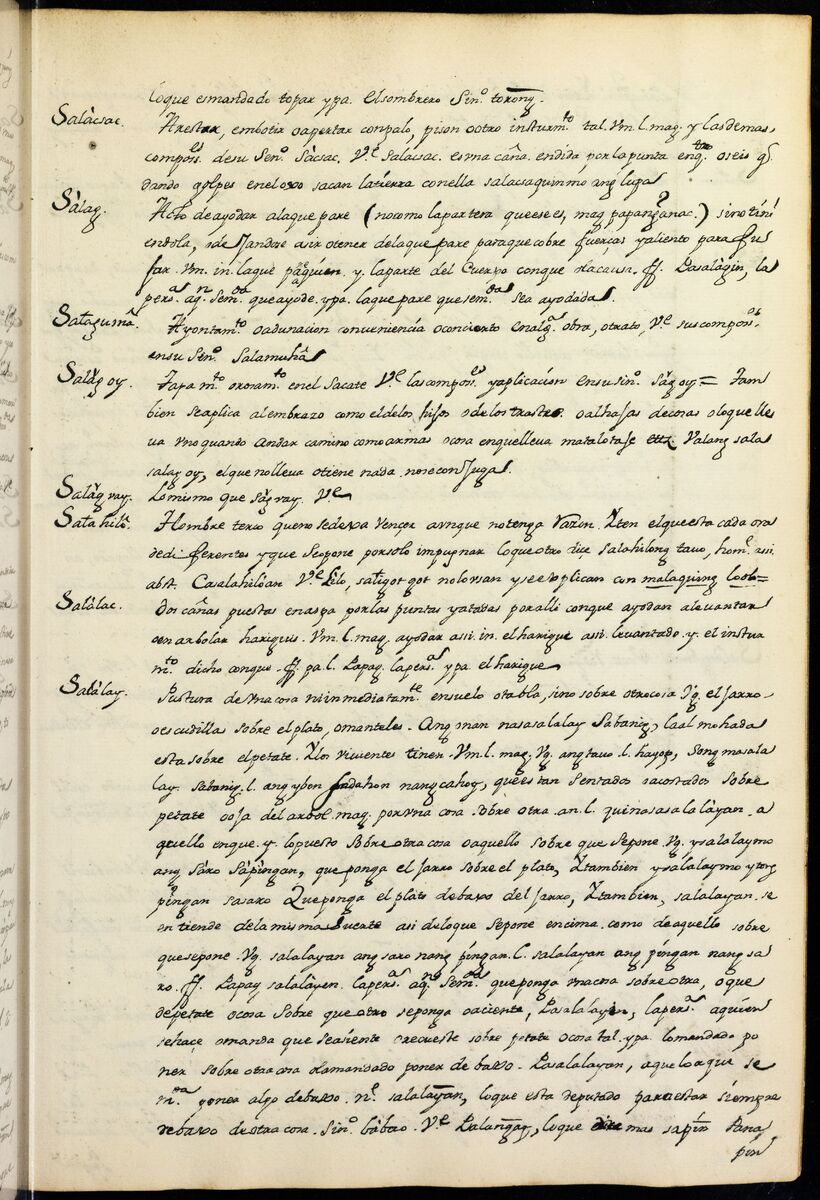 loque esmandado topar ypa. Elsombrero Sin.º torong.
Salàcsac. Arestar, embotir oapertar conpalo, pison ootro insturm.to tal. Vm. l. mag. y lasdemas,
compon.es desu Sen.º Sàcsac. V.e Salácsac. esma caña. endida por lapunta enq.tro oseis q.
dando golpes enel oxo sacan latierra conella salacsaquinmo ang luga
Sàlag. Acto deayodar alaque pare (nocomo lapartera queesees, mag papanganac.) sino tiní
endola, ode Jandose asir otener delaque pare paraque cobre fuerças yaliento para fu
far. Vm. in. laque paquien. y laparte del Cuerpo conque olacausa. ff. Pasalàgin, la
pers.a aq.n Sem.da queayode. ypa. laque pare que sem.da sea ayodada.
Ayontam.to oadunacion concurniencia oconcierto enalg.a obra, otrato, V.e suscompon.es
ensu Sin.º Salamuhà
Salàg oy. Tapam.to ororam.to enel Sacate V.e lascompon.es yaplicacion ensusin.º sàg oy = Tam
bien seaplica alembrazo como eldelos hijos odelostrastos. oalhajas decoras oloquelle
ua vno quando andar camino comoarmas ocosa enquelleva matalotaje ettz. Valang sala
salag oy, elque nolleva otiene nada. nose conjuga.
Salàg ray. Lomismo que sàg ray. V.e
Salahilò. Hombre terco queno sedexa vençer aunque notenga Razon. Yten elqueesta cada ora
dediferentes yque sepone porsolo impugnar loqueotro dice salahilong tauo, hom.e asi.
abst. Casalahilòan V.e Lilo, saligotgot nolovsan yseexplican con malaquing loob=
Salàlac. Dos cañas puestas enaspa por las puntas yatadas poralli conque ayodan alevantar
oenarbolar hariguis. Vm. l. mag. ayodar assi. in. el harigue assi. levantado. y. el instru
m.to dicho conque. ff. pa. l. Papag. lapers.a ypa. el harigue.
Salàlay. Postura devnacosa niinmediatam.te ensuelo otabla, sino sobre otracosa Vg. el jarro.
oescudillas sobre el plato, omanteles. Ang man nasasalalay Sabanig, laal mohada
esta sobre elpetate. Ylos vivientes tinen. Vm. l. mag. Vg. ang tauo. l. hayop, Song masala
lay. Sabanig. l. ang ybon Sadahon nang cahoy, queestan Sentados oacostados sobre
petate ooja del arbol. mag. por vna cosa sobre otra. an. l. quinasasalalàyan. a
quello enque. y. lopuesto sobre otracosa oaquello sobre que sepone Vg. ysalalaymo
ang Sàro Sàpingan, que ponga el jarro sobre el plato, Ytambien ysalàlaymo ytong
pingan sasaro Queponga el plato debaxo del jarro, Ytambien, salalayan. se
entiende delamisma Suerte asi deloque sepone encima. como deaquello sobre
quesepone. Vg. salalayan ang saro nang pingan. l. salalayan ang pingan nang sa
ro. ff. Papag salalàyen. lapers.a aq.n Sem.da queponga vnacosa sobreotra, oque
depetate ocosa sobre que otro seponga oaciente, Pasalalayin, lapers.a aquien
sehaçe omanda que seasiente orecueste sobre petate ocosa tal. ypa. lomandado po
ner sobre otracosa olamandado poner debaxo. Pasalalayan, aquelloaque se
m.da poner algo debaxo. n.e salalayan, loque esta deputado paraestar siempre
debaxo deotra cosa. Sin.º bàbao. V.e Palangag, loque dice mas sapin Pana
pin